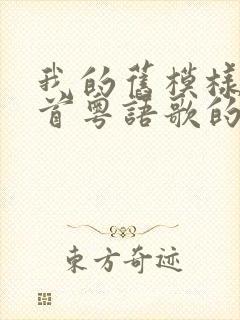 我的舊模樣
首粵語歌的
東方奇迹